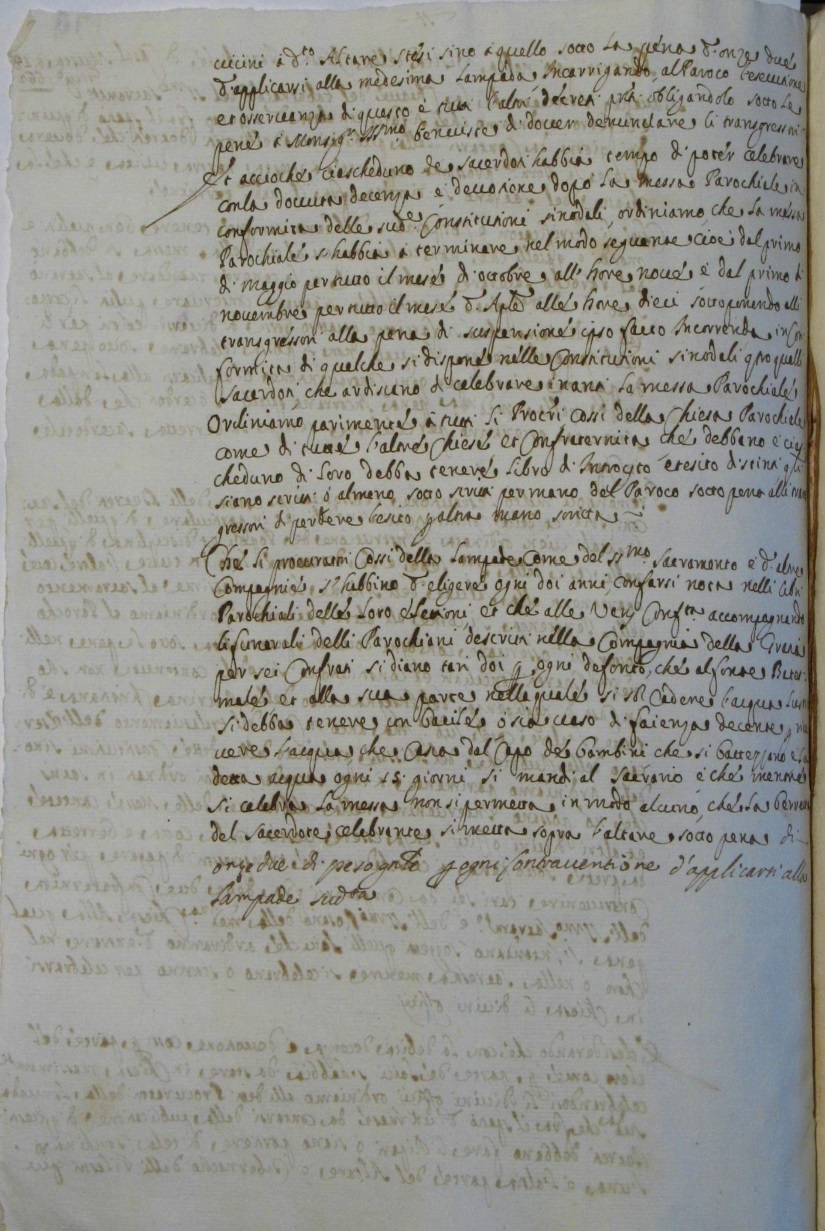 vicini à d.to Altare, stesi sino à quello sotto la pena d'onze due
d'applicarsi alla medesima Lampada, Incarrigando, al Paroco l'esecutione
et osservanza di questo è tutti l'altri decreti, obligandolo sotto le
pene à Monsig.r Ill.mo benviste, di dover denunciare li transgressori
Et acciochè ciascheduno de sacerdoti habbia tempo di poter celebrare
con la dovuta decenza, è devotione, dopo la messa Parochiale, in
conformità delle sud.e Constitutioni sinodali, ordiniamo, che la messa
Parochiale s'habbia à terminare, nel modo seguente cioè dal primo
di maggio per tutto il mese di ottobre, all'hore nove è dal primo di
novembre per tutto il mese d'Ap.le alle hore dieci sottoponendo alli
transgressori alla pena di suspensione ipso facto Incorrenda, in con
formità di quelche si dispone nelle Constitutioni sinodali quelli
sacerdoti che ardiscano di celebrare inanti la messa Parochiale
Ordiniamo parimente à tutti li Proc.ri cossì della Chiesa Parochiale
come di tutte l'altre Chiese et Confraternità che debbano è cias
cheduno di loro debba tenere, libro di Introyto et esito distinti
siano scritti ò almeno sotto scritti per mano del Paroco sotto pena alli trans
gressori di perdere l'esito p altra mano scritta
Che li procuratori cossì della Lampade, come del SS.mo Sacramento è d'altre
Compagnie, s'habbino d'eligere ogni doi anni, con farsi nota nelli libri
Parochiali delle loro elettioni et che alle Ven. Conf.te accompagnando
li funerali delli Parochiani descritti nella Compagnia della
per sei Confrati si diano tari doi p ogni defonto, che al fonte Battes
male et alla sua parte nella quale si cadere l'acqua
si debba tenere, un bacile ò sia vaso di faienza decente p rice
vere l'acqua che casca dal Capo de bambini che si battezzano è la
detta acqua ogni 15 giorni si mandi al sacrario è che mentre
si celebra la messa non si permetta, in modo alcuno, che la berretta
del sacerdote celebrante, si metta sopra l'altare, sotto pena di
onze due di p ogni contraventione d'applicarsi alla
Lampade sud.ta